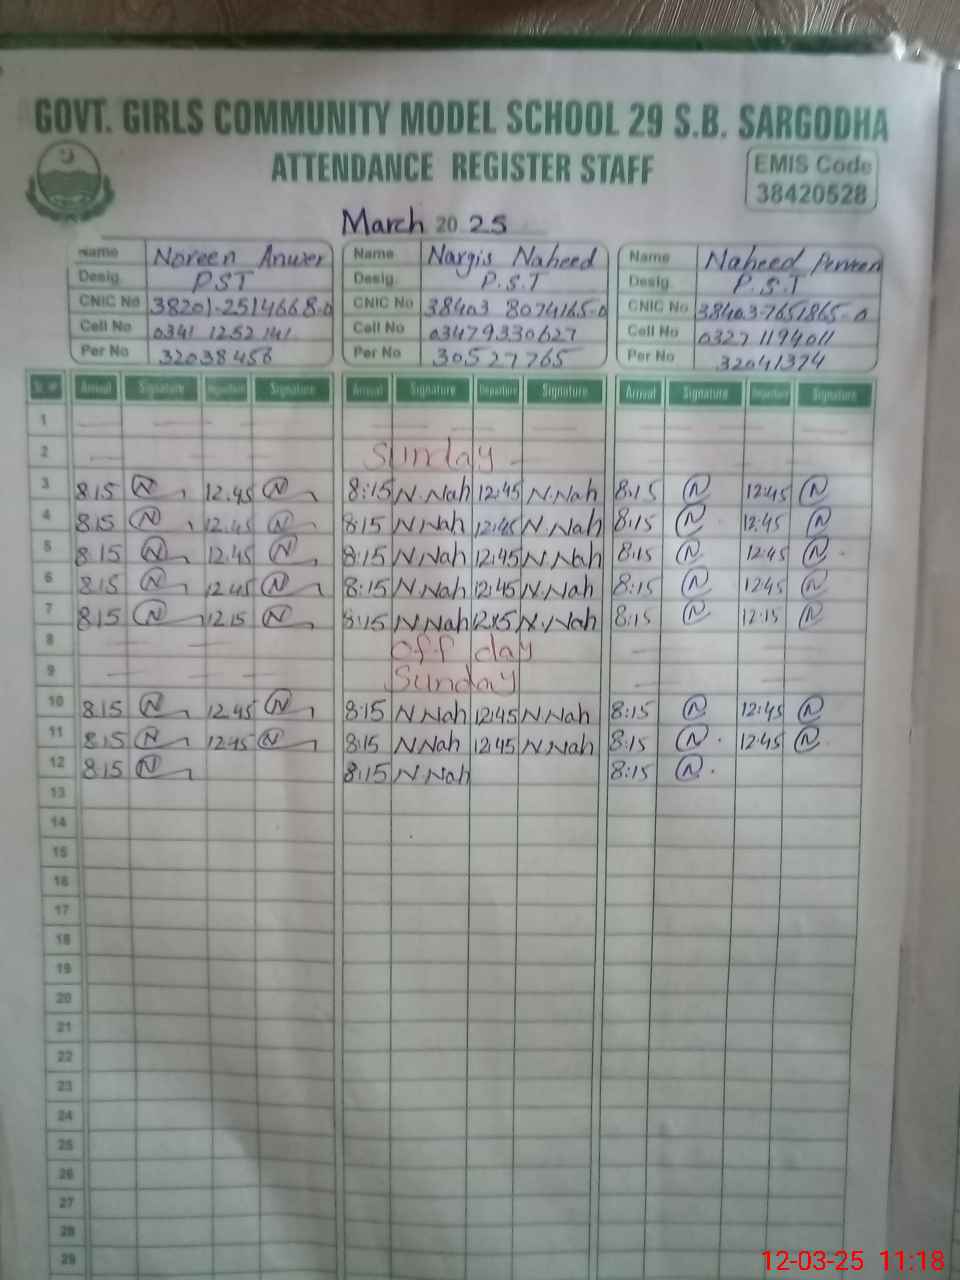 GOVT. GIRLS COMMUNITY MODEL SCHOOL 29 S.B. SARGODHA
ATTENDANCE REGISTER STAFF
EMIS Code
38420528
March 2025
Name Noreen Anwer Name Nargis Naheed Name Naheed Perveen
Desig. PST Desig. P.S.T Desig. P.S.T
CNIC No 38201-2514668-0 CNIC No 38403 8074165-0 CNIC No 38403-7651865-0
Cell No 0341 1252141 Cell No 03479330627 Cell No 0327 1194011
Per No 32038456 Per No 30527765 Per No 32041374
Sr. # Arrival Signature Departure Signature Arrival Signature Departure Signature Arrival Signature Departure Signature
1
2 Sunday
3 8.15 N 12.45 N 8:15 N.Nah 12:45 N.Nah 8:15 N 12:45 N
4 8.15 N 12.45 N 8:15 N.Nah 12:45 N.Nah 8:15 N 12:45 N
5 8.15 N 12.45 N 8:15 N.Nah 12:45 N.Nah 8:15 N 12:45 N
6 8.15 N 12.45 N 8:15 N.Nah 12:45 N.Nah 8:15 N 12:45 N
7 8.15 N 12.15 N 8:15 N.Nah N.Nah 8:15 N 12:15 N
8 off day
9 Sunday
10 8.15 N 12.45 N 8:15 N.Nah 12:45 N.Nah 8:15 N 12:45 N
11 8.15 N 12.45 N 8:15 N.Nah 12:45 N.Nah 8:15 N 12:45 N
12 8.15 N 8:15 N.Nah 8:15 N
13
14
15
16
17
18
19
20
21
22
23
24
25
26
27
28
29
12-03-25 11:18